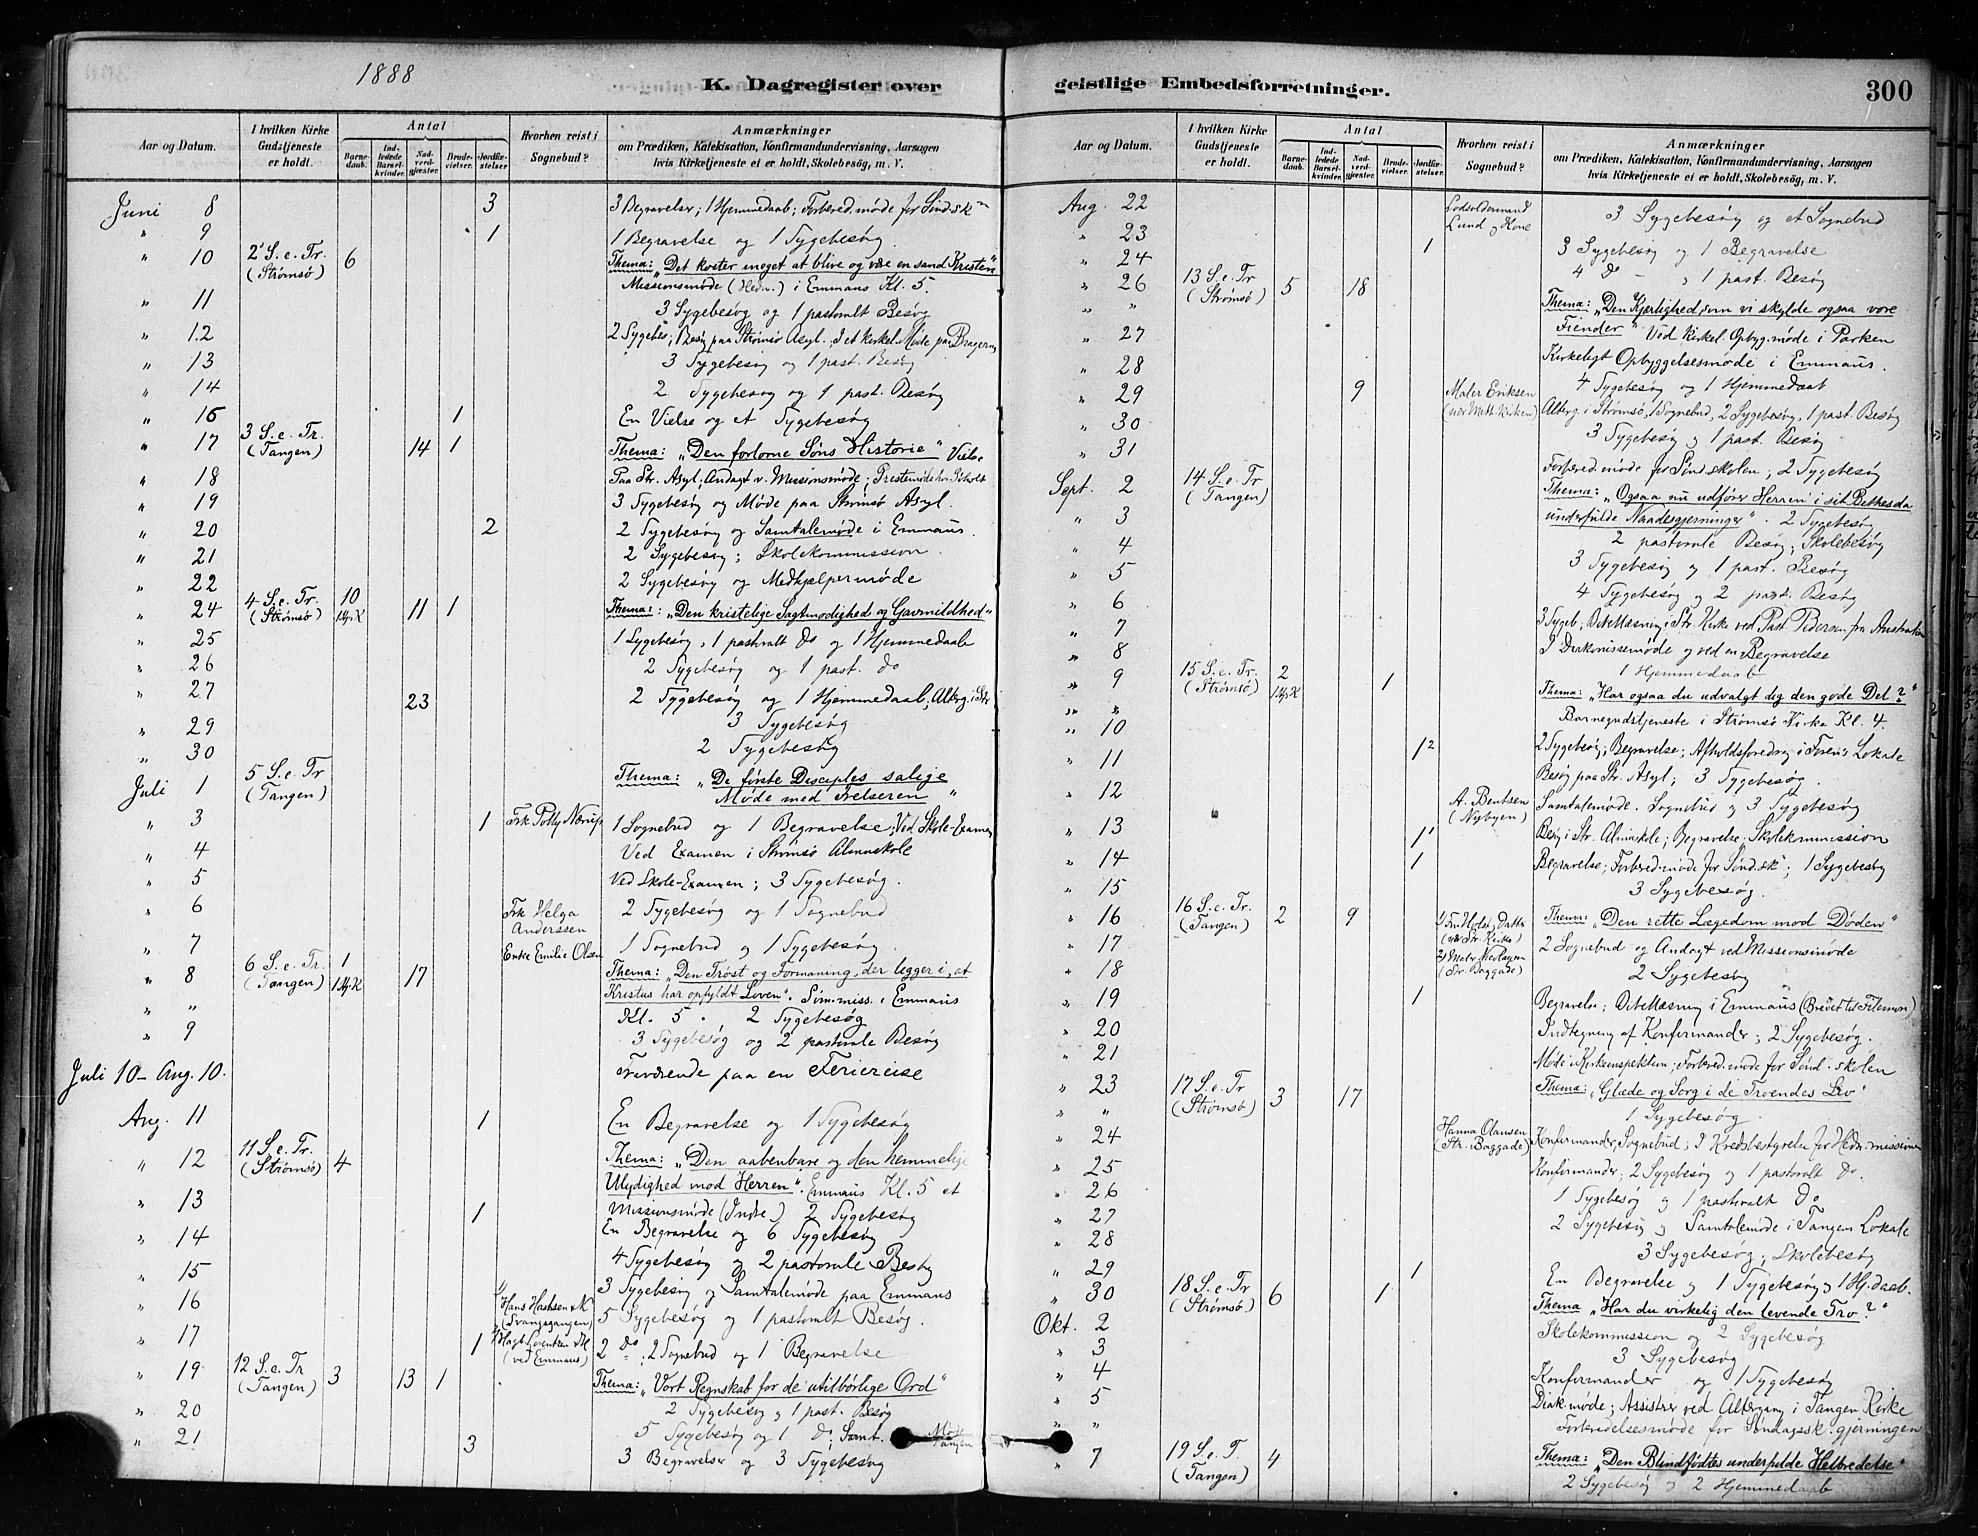 1888
K. Dagregister over
Aar og Datum.
I hvilken Kirke Gudstjeneste er holdt.
Antal
Barnedaab.
Indledede Barselkvinder.
Nadverdgjester.
Brudevielser.
Jordfæstelser
Hvorhen reist i Sognebud?
Anmærkninger
om Prædiken, Katekisation, Konfirmandundervisning, Aarsagen
hvis Kirketjeneste ei er holdt, Skolebesög, m. V.
Juni 8 3 3 Begravelser; 1 Hjemmedaab; Forbered.møde for Sønd.sk
" 9 1 1 Begravelse og 1 Sygebesøg
" 10 2 S. e. Tr. (Strømsø) 6 Thema: "Det koster meget at blive og være en sand Kristen"
Missionsmøde (Hedn.) i Emmaus Kl. 5.
" 11 3 Sygebesøg og 1 pastoralt Besøg
" 12 2 Sygebes., 1 Besøg paa Strømsø Asyl. I et kirkel. Møde paa Bragernes
" 13 3 Sygebesøg og 1 past. Besøg
" 14 2 Sygebesøg og 1 past. Besøg
" 16 1 En Vielse og et Sygebesøg
" 17 3 S. e. Tr. (Tangen) 14 1 Thema: "Den forlorne Søns Historie" Vielse
" 18 Paa Str. Asyl; Andagt v. Missionsmøde; Prestemøde hos
" 19 3 Sygebesøg og Møde paa Strømsø Asyl.
" 20 2 2 Sygebesøg og Samtalemøde i Emmaus.
" 21 2 Sygebesøg; Skolekommission
" 22 2 Sygebesøg og Medhjælpermøde
" 24 4 S. e. Tr. (Strømsø) 10 1 Hj. K 11 1 Thema: "Den kristelige Sagtmodighed og Gavmildhed"
" 25 1 Sygebesøg, 1 pastoralt do og 1 Hjemmedaab
" 26 2 Sygebesøg og 1 past. do
" 27 23 2 Sygebesøg og 1 Hjemmedaab, Alterg. i Str
" 29 3 Sygebesøg
" 30 2 Sygebesøg
Juli 1 5 S. e. Tr (Tangen) Thema: "De første Disciples salige
Møde med Frelseren"
" 3 1 Frk Polly Nærup 1 Sognebud og 1 Begravelse; Ved Skole-Examen
" 4 Ved Examen i Strømsø Almuskole
" 5 Ved Skole-Examen; 3 Sygebesøg.
" 6 Frk Helga Anderssen 2 Sygebesøg og 1 Sognebud
" 7 Enke Emilie Olsen 1 Sognebud og 1 Sygebesøg
" 8 6 S. e. Tr. (Tangen) 1 1 Hj. K 17 Thema: "Den Trøst og Formaning, der ligger i, at
Kristus har opfyldt Loven". Søm.miss. i Emmaus
" " Kl. 5. 2 Sygebesøg
" 9 3 Sygebesøg og 2 pastorale Besøg
Juli 10 - Aug. 10. Fraværende paa en Feriereise
Aug. 11 1 En Begravelse og 1 Sygebesøg
" 12 11 S. e. Tr. (Strømsø) 4 Thema: "Den aabenbare og den hemmelige
Ulydighed mod Herren". Emmaus Kl. 5 et
" 13 1 Missionsmøde (Indre) 2 Sygebesøg
" 14 En Begravelse og 6 Sygebesøg
" 15 4 Sygebesøg og 2 pastorale Besøg
" 16 Hans (Svangsgangen) 3 Sygebesøg og Samtalemøde paa Emmaus
" 17 1 (ved Emmaus) 5 Sygebesøg og 1 pastoralt Besøg.
2 do; 2 Sognebud og 1 Begravelse
" 19 12 S. e. Tr (Tangen) 3 13 1 Thema: "Vort Regnskab for de utilbørlige Ord"
" 20 2 Sygebesøg og 1 past. Besøg
" 21 3 5 Sygebesøg og 1 do; Samt. Møde Tangen
3 Begravelser og 3 Sygebesøg
geistlige Embedsforretninger.
300
Aar og Datum.
I hvilken Kirke Gudstjeneste er holdt.
Antal
Barnedaab.
Indledede Barselkvinder.
Nadverdgjester.
Brudevielser.
Jordfæstelser.
Hvorhen reist i Sognebud?
Anmærkninger
om Prædiken, Katekisation, Konfirmandundervisning, Aarsagen
hvis Kirketjeneste ei er holdt, Skolebesög, m. V.
Aug. 22 Lodsoldermand Lund og Kone 3 Sygebesøg og et Sognebud
" 23 1 3 Sygebesøg og 1 Begravelse
" 24 4 do " 1 past. Besøg
" 26 13 S. e. Tr (Strømsø) 5 18 Thema: "Den Kjærlighed, som vi skylde ogsaa vore
Fiender" Ved kirkel. Opbyg.møde i Parken
" " Kirkeligt Opbyggelsesmøde i Emmaus.
" 27 4 Sygebesøg og 1 Hjemmedaab
" 28
" 29 9 Maler Eriksen Alterg. i Strømsø, 1 Sognebud, 2 Sygebesøg, 1 past. Besøg
" 30 3 Sygebesøg og 1 past. Besøg
" 31 Forbered.møde for Sønd.skolen; 2 Sygebesøg
Sept. 2 14 S. e. Tr (Tangen) Thema: "Ogsaa nu udfører Herren i sit Bethesda
underfulde Naadesgjerninger". 2 Sygebesøg
" 3 2 pastorale Besøg; Skolebesøg
" 4 3 Sygebesøg og 1 past. Besøg
" 5 4 Sygebesøg og 2 past. Besøg
" 6 3 Sygeb., Bibellæsning i Str. Kirke ved Past. Pedersen fra Australien
" 7 I Diakonissemøde og ved en Begravelse
" 8 1 Hjemmedaab
" 9 15 S. e. Tr. (Strømsø) 2 1 Hj. K 1 Thema: "Har ogsaa du udvalgt dig den gode Del?"
" " Barnegudstjeneste i Strømsø Kirke Kl. 4.
" 10 1 2 2 Sygebesøg; Begravelse; Afholdsforedrag i Foren's Lokale
" 11 Besøg paa Str. Asyl; 3 Sygebesøg.
" 12 A. Bentsen (Nybyen) Samtalemøde. Sognebud og 3 Sygebesøg
" 13 1 Besøg i Str. Almuskole; Begravelse. Skolekommission
" 14 1 Begravelse; Forbered.møde for Sønd.sk; 1 Sygebesøg
" 15 3 Sygebesøg.
" 16 16 S. e. Tr. (Tangen) 2 9 Thema: "Den rette Lægedom mod Døden"
" 17 2 Sognebud og Andagt ved Missionsmøde
" 18 (Str. Baggade) 2 Sygebesøg
" 19 1 Begravelse; Bibellæsning i Emmaus (Brevet til Filemon)
" 20 Indtegning af Konfirmander; 2 Sygebesøg.
" 21 Møde i Kirkeinspektion; Forbered.møde for Sønd.skolen
" 23 17 S. e. Tr (Strømsø) 3 17 Thema: "Glæde og Sorg i de Troendes Liv"
" " 1 Sygebesøg
" 24 Hanna Olausen (Str. Baggade) Konfirmander, Sognebud; I Kredsbestyrelse for Hedn.missionen
" 25 Konfirmander; 2 Sygebesøg og 1 pastoralt do.
" 26 1 Sygebesøg og 1 pastoralt do
" 27 2 Sygebesøg og Samtalemøde i Tangen Lokale
" 28 3 Sygebesøg; Skolebesøg
" 29 1 En Begravelse og 1 Sygebesøg og 1 Hj.daab.
" 30 18 S. e. Tr (Strømsø) 6 1 Thema "Har du virkelig den levende Tro?"
Okt. 2 Skolekommission og 2 Sygebesøg
" 3 3 Sygebesøg
" 4 Konfirmander og 1 Sygebesøg
" 5 Diak.møde; Assistrer ved Altergang i Tangen Kirke
" " Forberedelsesmøde for Søndagssk.gjerningen
" 7 19 S. e. T. (Tangen) 4 Thema: "Den Blindfødtes underfulde Helbredelse"
2 Sygebesøg og 2 Hjemmedaab